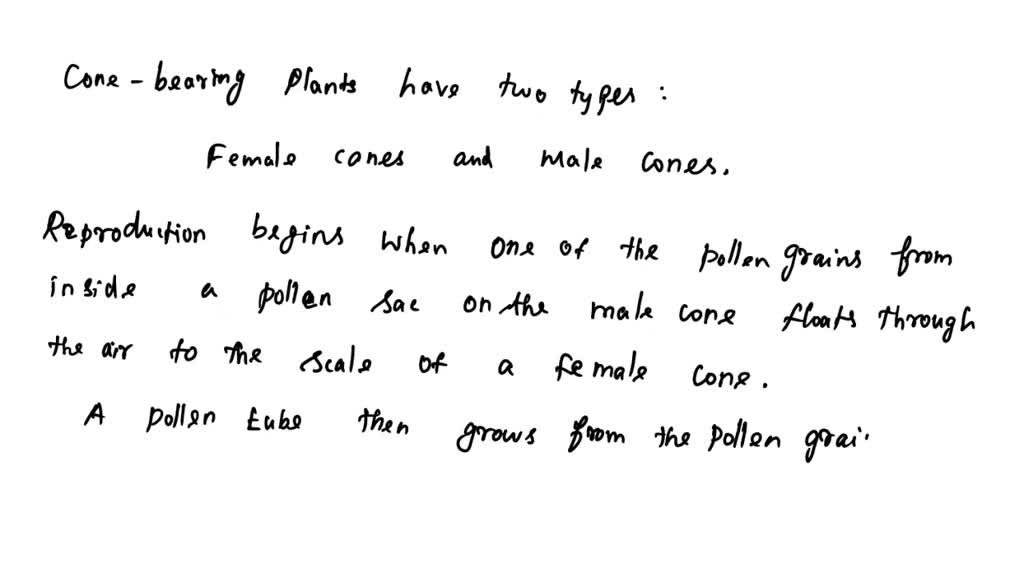 Cone-bearing Plants have two types:
Female cones and male cones.
Reproduction begins when one of the pollen grains from
inside a pollen sac on the male cone floats through
the air to the scale of a female cone.
A pollen tube then grows from the pollen grai